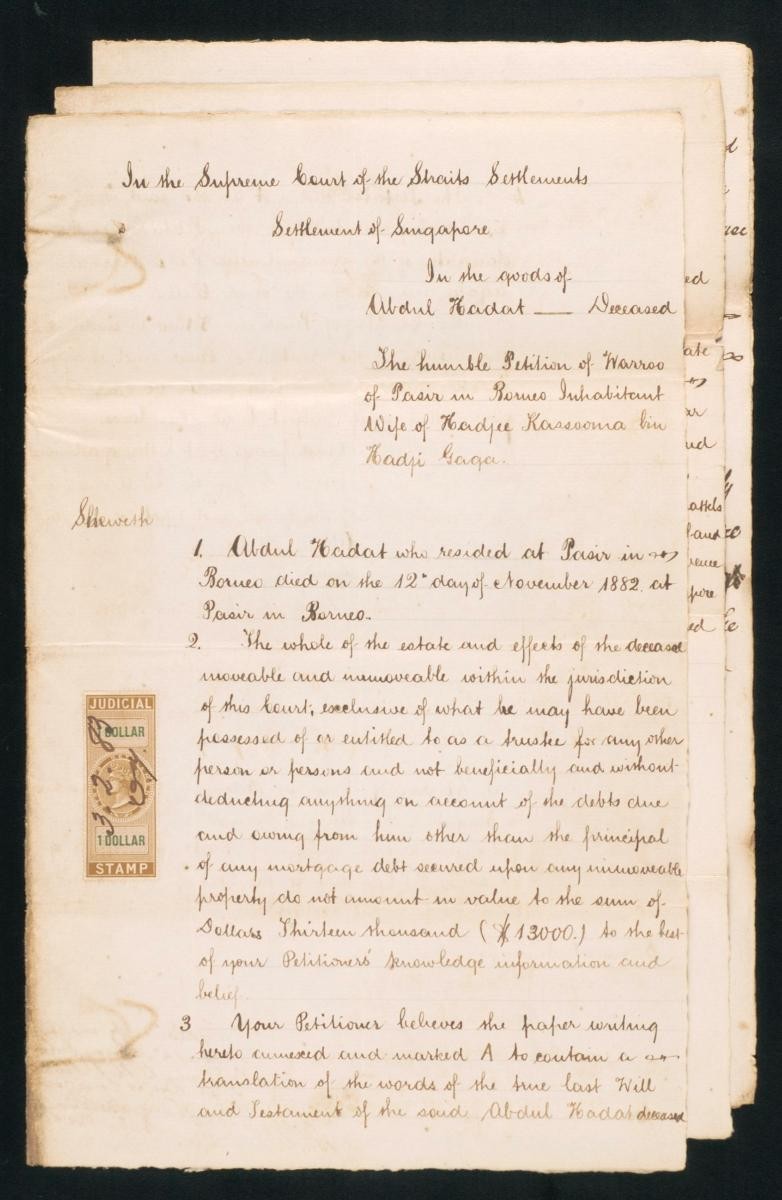 In the Supreme Court of the Straits Settlements
Settlement of Singapore
In the goods of
Abdul Kadat — Deceased
The humble Petition of Warroo
of Pasir in Borneo Inhabitant
Wife of Hadjee Kassooma bin
Hadji Gaga.
Sheweth
1. Abdul Kadat who resided at Pasir in
Borneo died on the 12" day of November 1882 at
Pasir in Borneo.
2. The whole of the estate and effects of the deceased
moveable and immoveable within the jurisdiction
of this Court, exclusive of what he may have been
possessed of or entitled to as a trustee for any other
person or persons and not beneficially and without
deducting anything on account of the debts due
and owing from him other than the principal
of any mortgage debt secured upon any immoveable
property do not amount in value to the sum of
Dollars Thirteen thousand ($13000.) to the best
of your Petitioners' knowledge information and
belief.
3 Your Petitioner believes the paper writing
hereto annexed and marked A to contain a
translation of the words of the true last Will
and Testament of the said Abdul Kadat deceased
JUDICIAL
DOLLAR
3. 3. 83
1 DOLLAR
STAMP